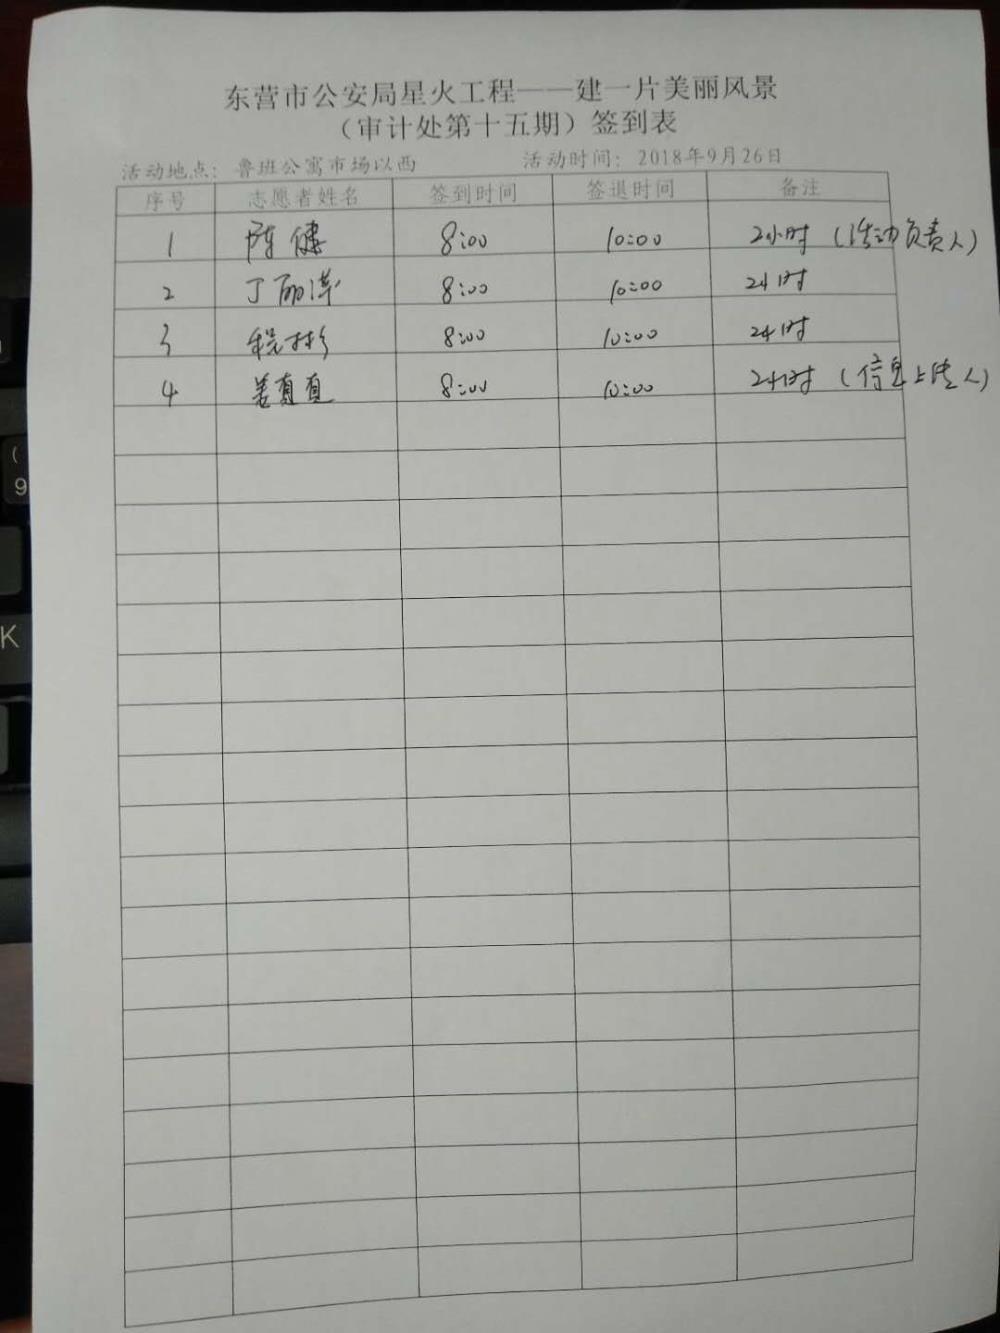 东营市公安局星火工程——建一片美丽风景
（审计处第十五期）签到表
活动地点：鲁班公寓市场以西 活动时间：2018年9月26日
序号 志愿者姓名 签到时间 签退时间 备注
1 陈健 8:00 10:00 2小时（活动负责人）
2 丁丽萍 8:00 10:00 2小时
3 程彬 8:00 10:00 2小时
4 姜真真 8:00 10:00 2小时（信息上传人）
(
9
K